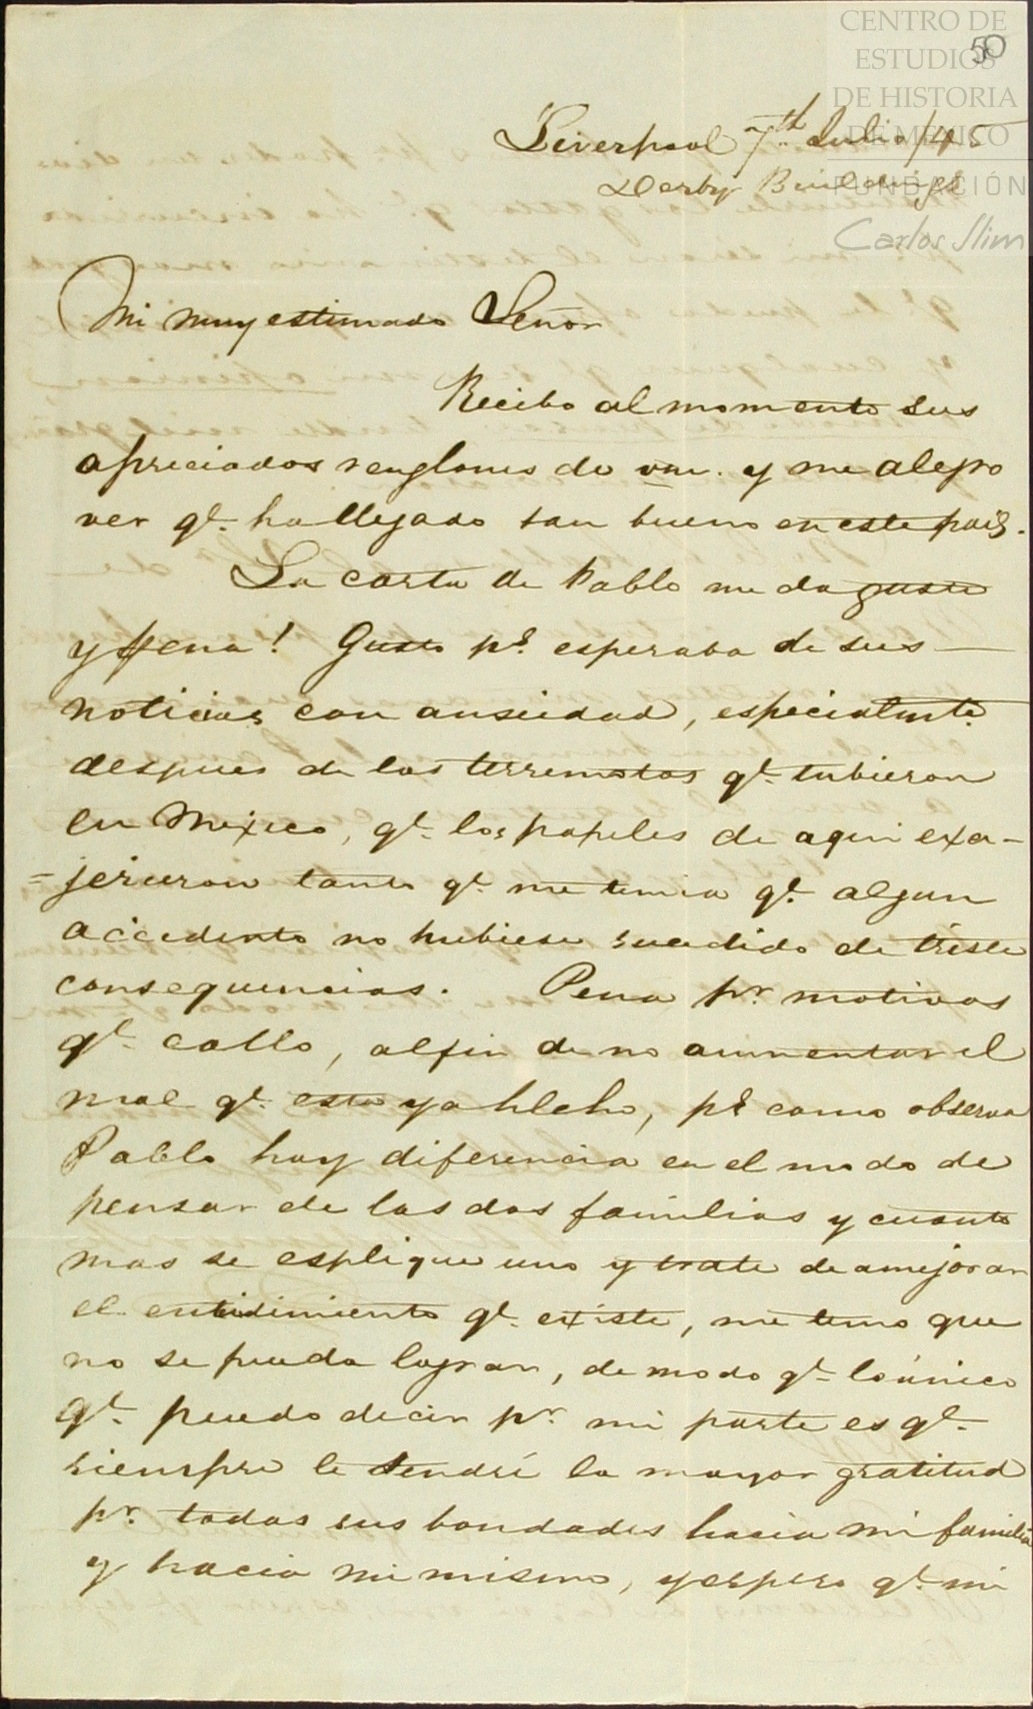 CENTRO DE
ESTUDIOS
DE HISTORIA
DE MÉXICO
FUNDACIÓN
Carlos Slim
50
Liverpool 7th Julio/45
Derby Buildings
Mi muy estimado Señor
Recibo al momento sus
apreciados renglones de vm. y me alegro
ver qe. ha llegado tan bueno en este pais.
La carta de Pablo me da gusto
y pena! Gusto ps. esperaba de sus
noticias con ansiedad, especialmte.
despues de los terremotos qe. tubieron
en Mexico, qe. los papeles de aqui exa-
=jeraron tanto qe. me temia qe. algun
accidente no hubiese sucedido de triste
consequencias. Pena pr. motivos
qe. callo, alfin de no aumentar el
mal qe. esta ya hecho, ps como observa
Pablo hay diferencia en el modo de
pensar de las dos familias y cuanto
mas se esplique uno y trate de amejorar
el entidimiento qe. existe, me temo que
no se pueda lograr, de modo qe. lo único
qe. puedo decir pr. mi parte es qe.
siempre le tendré la mayor gratitud
pr. todas sus bondades hacia mi familia
y hacia mi mismo, y espero qe. mi